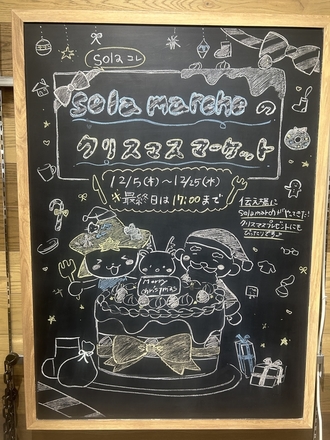 solaコレ
sola marcheの
クリスマスマーケット
12/5(木)〜12/25(水)
※最終日は17:00まで
伝丘堂に
sola marcheがやってきた!
クリスマスプレゼントにも
ぴったりですよ
Merry
christmas